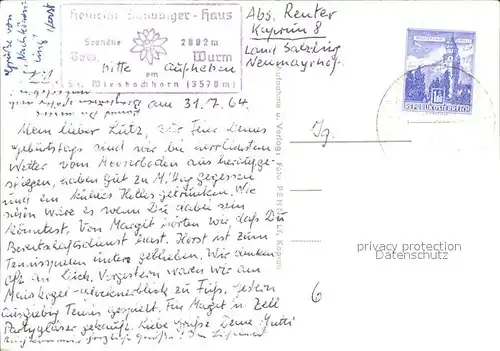 Heinrich Schwaiger-Haus
Seehöhe 2802 m
Bew. Wurm
am
Gr. Wiesbachhorn (3570m)
Grüße von
bitte aufheben
Abs. Reuter
Kaprun 8
Land Salzburg
Neumayrhof.
REPUBLIK ÖSTERREICH
am 31.7.64.
Mein lieber Lutz, zur Feier Deines
Geburtstags sind wir bei herrlichstem
Wetter vom Mooserboden aus heraufge-
stiegen, haben gut zu M'ttag gegessen
und ein kühles Helles getrunken. Wie
schön wäre es wenn Du dabei sein
könntest. Von Margit hörten wir daß Du
Bereitschaftsdienst hast. Horst ist zum
Tennisspielen unten geblieben. Wir denken
oft an Dich. Vorgestern waren wir am
Maiskogel zu Fuß, gestern
ausgiebig Tennis gespielt. Für Margit in Zell
Partygläser gekauft. Liebe Grüße Deine Mutti
Jg.
6
privacy protection
Datenschutz